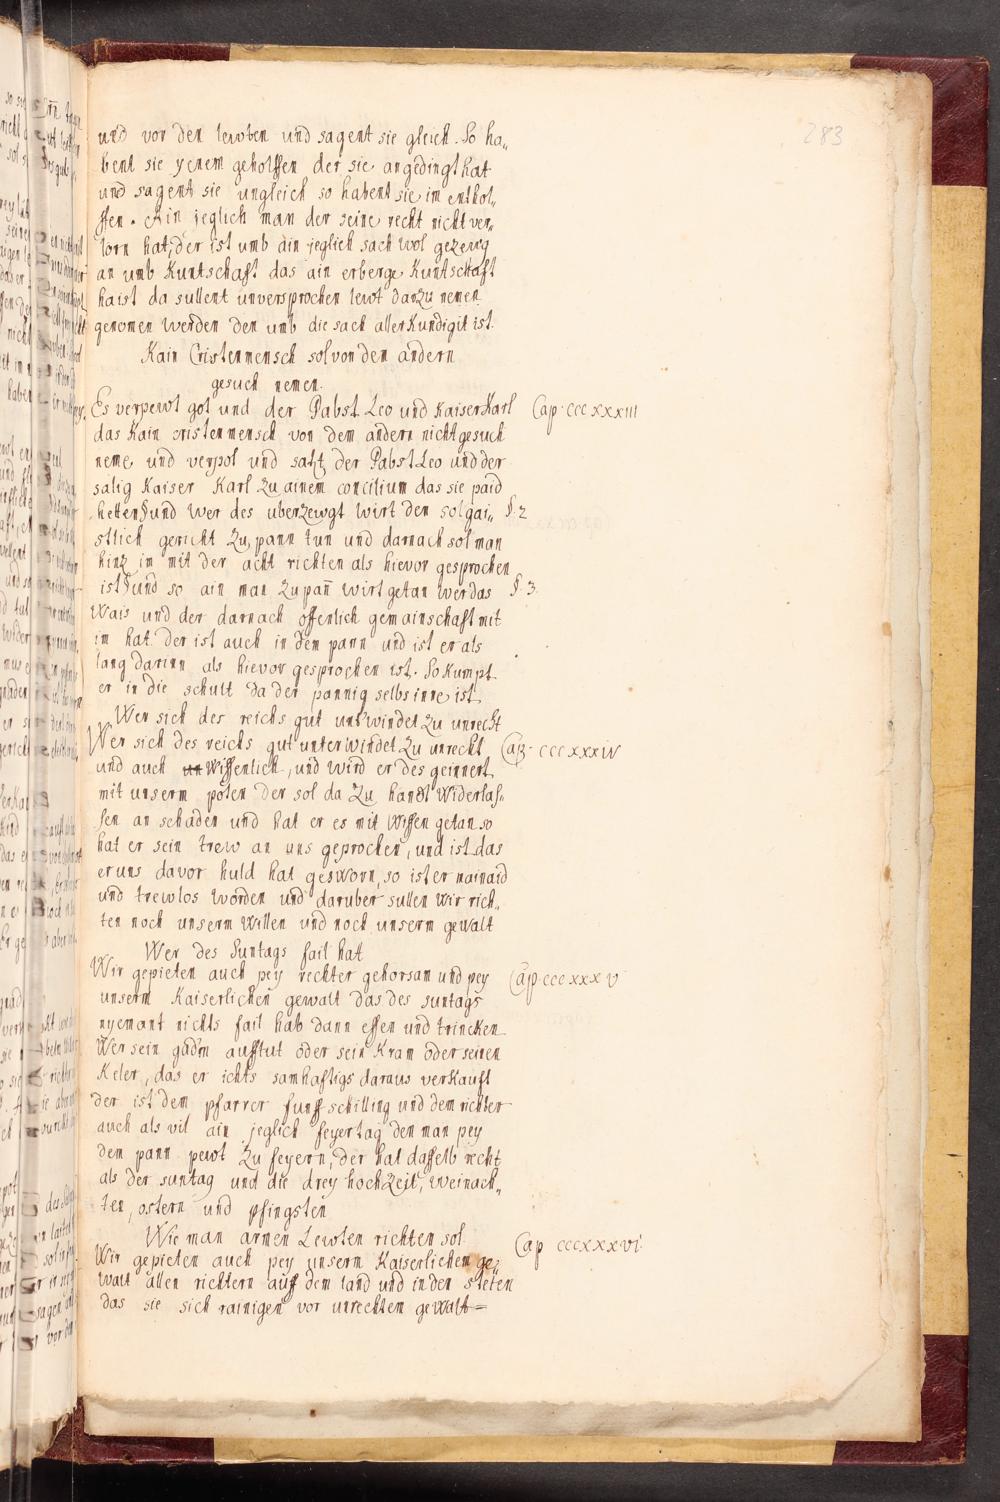 283
und vor den lewten und sagent sie gleich. So ha„
bent sie yenem geholffen der sie angedingt hat
und sagent sie ungleich so habent sie im enthol„
ffen. Ain jeglich man der seine recht nicht ver„
lorn hat, der ist umb ain jeglich sach wol gezewg
an umb Kuntschaft das ain erberge Kuntschaft
haist da sullent unversprochen lewt darzu nemen
genomen werden den umb die sach aller Kundigit ist.
Kain Cristenmensch sol von dem andern
gesuch nemen.
Es verpewt got und der Pabst Leo und Kaiser Karl Cap. cccxxxiii
das Kain cristenmensch von dem andern nicht gesuch
neme und verpot und satzt der Pabst Leo und der
salig Kaiser Karl zu ainem concilium das sie paid
hetten § und wer des uberzewgt wirt den sol gai„ §. 2
stlich gericht zu pann tun und darnach sol man
hinz im mit der acht richten als hievor gesprochen
ist § und so ain man zu pan̄ wirt getan wer das §. 3.
wais und der darnach offenlich gemainschaft mit
im hat. der ist auch in dem pann und ist er als
lang darinn als hievor gesprochen ist. So Kumpt
er in die schult da der pannig selbs inne ist
Wer sich des reichs gut untwindet zu unrecht
Wer sich des reichs gut unterwindet zu unrecht Cap. cccxxxiv
und auch un wissenlich, und wird er des geinnert
mit unserm poten der sol da zu handt widerlas„
sen an schaden und hat er es mit wissen getan so
hat er sein trew an uns geprochen, und ist das
er uns davor huld hat gesworn, so ist er mainaid
und trewlos worden und daruber sullen wir rich„
ten noch unserm willen und noch unserm gewalt
Wer des Suntags fail hat
Wir gepieten auch pey rechter gehorsam und pey Cap. cccxxxv
unserm Kaiserlichen gewalt das des suntags
nyemant nichts fail hab dann essen und trincken
Wer sein gadm aufftut oder sein Kram oder seinen
Keler, das er ichts samhaftigs daraus verkauft
der ist dem pfarrer funff schilling und dem richter
auch als vil ain jeglich feyertag den man pey
dem pann pewt zu feyern, der hat dasselb recht
als der suntag und die drey hochzeit, weinach„
ten, ostern und pfingsten
Wie man armen Lewten richten sol Cap cccxxxvi
Wir gepieten auch pey unserm Kaiserlichen ge„
walt allen richtern auff dem land und in den steten
das sie sich rainigen vor unrechtem gewalt=